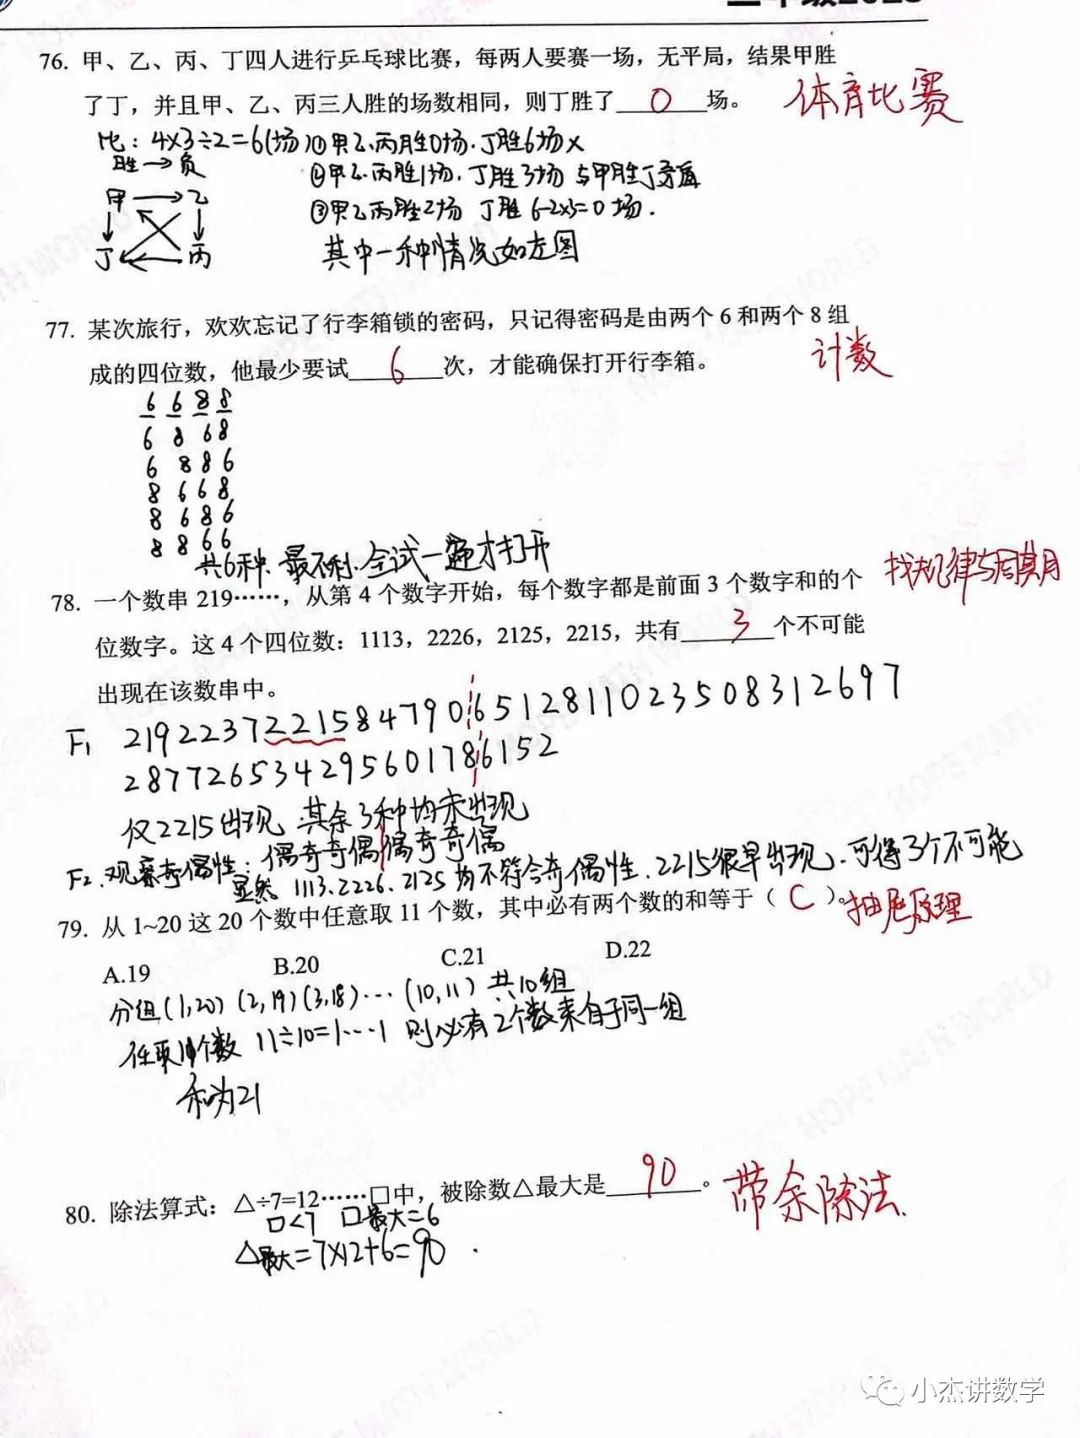 76. 甲、乙、丙、丁四人进行乒乓球比赛，每两人要赛一场，无平局，结果甲胜
了丁，并且甲、乙、丙三人胜的场数相同，则丁胜了 0 场。 体育比赛
比：4×3÷2=6(场) ①甲乙丙胜0场.丁胜6场×
胜→负 ②甲乙丙胜1场.丁胜3场 与甲胜丁矛盾
甲 乙 ③甲乙丙胜2场 丁胜 6-2×3=0 场.
丁 丙 其中一种情况如左图
77. 某次旅行，欢欢忘记了行李箱锁的密码，只记得密码是由两个 6 和两个 8 组
成的四位数，他最少要试 6 次，才能确保打开行李箱。 计数
6 6 8 8
6 8 6 8
6 8 8 6
8 6 6 8
8 6 8 6
8 8 6 6
共6种. 最不利.全试一遍才打开
找规律与周期
78. 一个数串 219……，从第 4 个数字开始，每个数字都是前面 3 个数字和的个
位数字。这 4 个四位数：1113，2226，2125，2215，共有 3 个不可能
出现在该数串中。
F1 21922372215847906512811023508312697
287726534295601786152
仅2215出现 其余3种均未出现
F2.观察奇偶性：偶奇奇偶偶奇奇偶
显然 1113.2226.2125 均不符合奇偶性.2215很早出现.可得3个不可能
79. 从 1~20 这 20 个数中任意取 11 个数，其中必有两个数的和等于（ C ）。 抽屉原理
A.19 B.20 C.21 D.22
分组(1,20) (2,19)(3,18)… (10,11) 共10组
任取11个数 11÷10=1…1 则必有2个数来自于同一组
和为21
80. 除法算式：△÷7=12……□中，被除数△最大是 90 。 带余除法.
□<7 □最大=6
△最大=7×12+6=90.
小杰讲数学